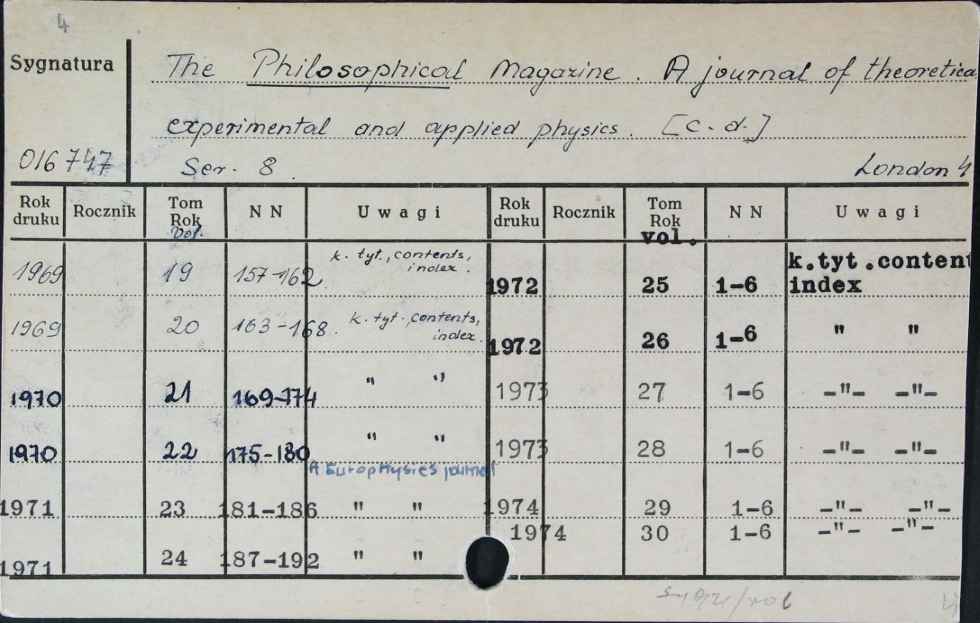 4
Sygnatura
The Philosophical Magazine. A journal of theoretical
experimental and applied physics. [c.d.]
016747 Ser. 8. London 4
Rok druku Rocznik Tom Rok Vol. NN Uwagi Rok druku Rocznik Tom Rok vol. NN Uwagi
1969 19 157-162 k. tyt., contents, index. 1972 25 1-6 k.tyt.content index
1969 20 163-168. k. tyt., contents, index. 1972 26 1-6 " "
1970 21 169-174 " " 1973 27 1-6 -"- -"-
1970 22 175-180 " " 1973 28 1-6 -"- -"-
A Europhysics journal
1971 23 181-186 " " 1974 29 1-6 -"- -"-
1974 30 1-6 -"- -"-
1971 24 187-192 " "